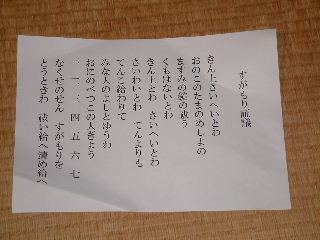 すがもり 証議
きん上とさいへいとわ
おのこのたまのめしよの
ますみの鏡の祓う
くもはないとわ
きん上とわ さいへいとわ
さいわいとわ てんよりも
てんこ給わりて
みな人のよしとゆうわ
おにのべつこの人ぎよう
一 二 三 四 五 六 七
なくせのせん すがもりを
とうとさわ 祓い給へ清め給へ